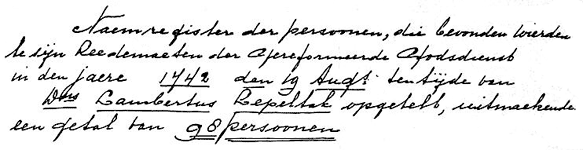 Naemregister der persoonen, die bevonden wierden
te sijn Leedemaeten der Gereformeerde Godsdienst
in den jaere 1742 den 19 Augt. ten tijde van
Dms Lambertus Lepeltak opgetelt, uitmaekende
een getal van 98 persoonen